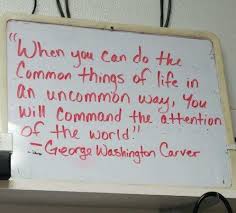 "When you can do the
Common things of life in
an uncommon way, you
will command the attention
of the world"
- George Washington Carver